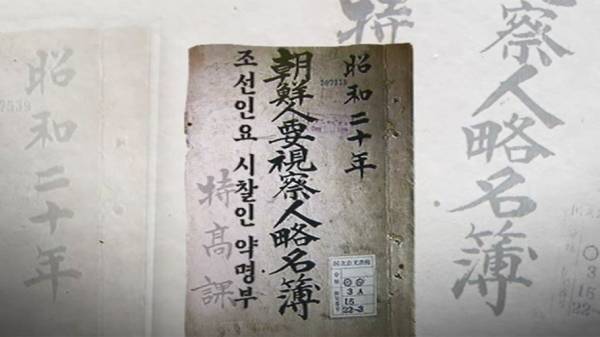 昭和二十年
朝鮮人要視察人略名簿
조선인요 시찰인 약명부
特高課
3 A
15
22-3
昭和二十年
特
察人略名簿
3
15
22-3